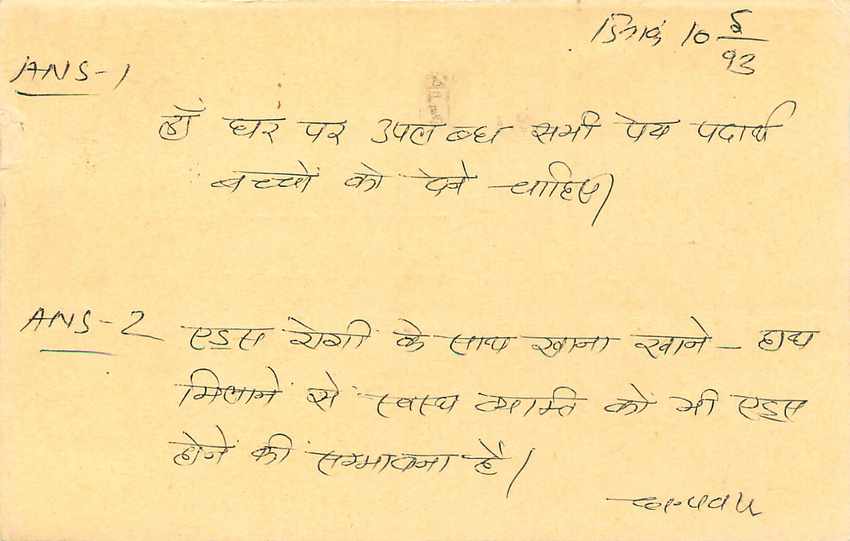 दिनांक 10 ६/93
ANS-1
हाँ घर पर उपलब्ध सभी पेय पदार्थ
बच्चों को देने चाहिए।
ANS-2 एड्स रोगी के साथ खाना खाने - हाथ
मिलाने से स्वस्थ व्यक्ति को भी एड्स
होने की सम्भावना है।